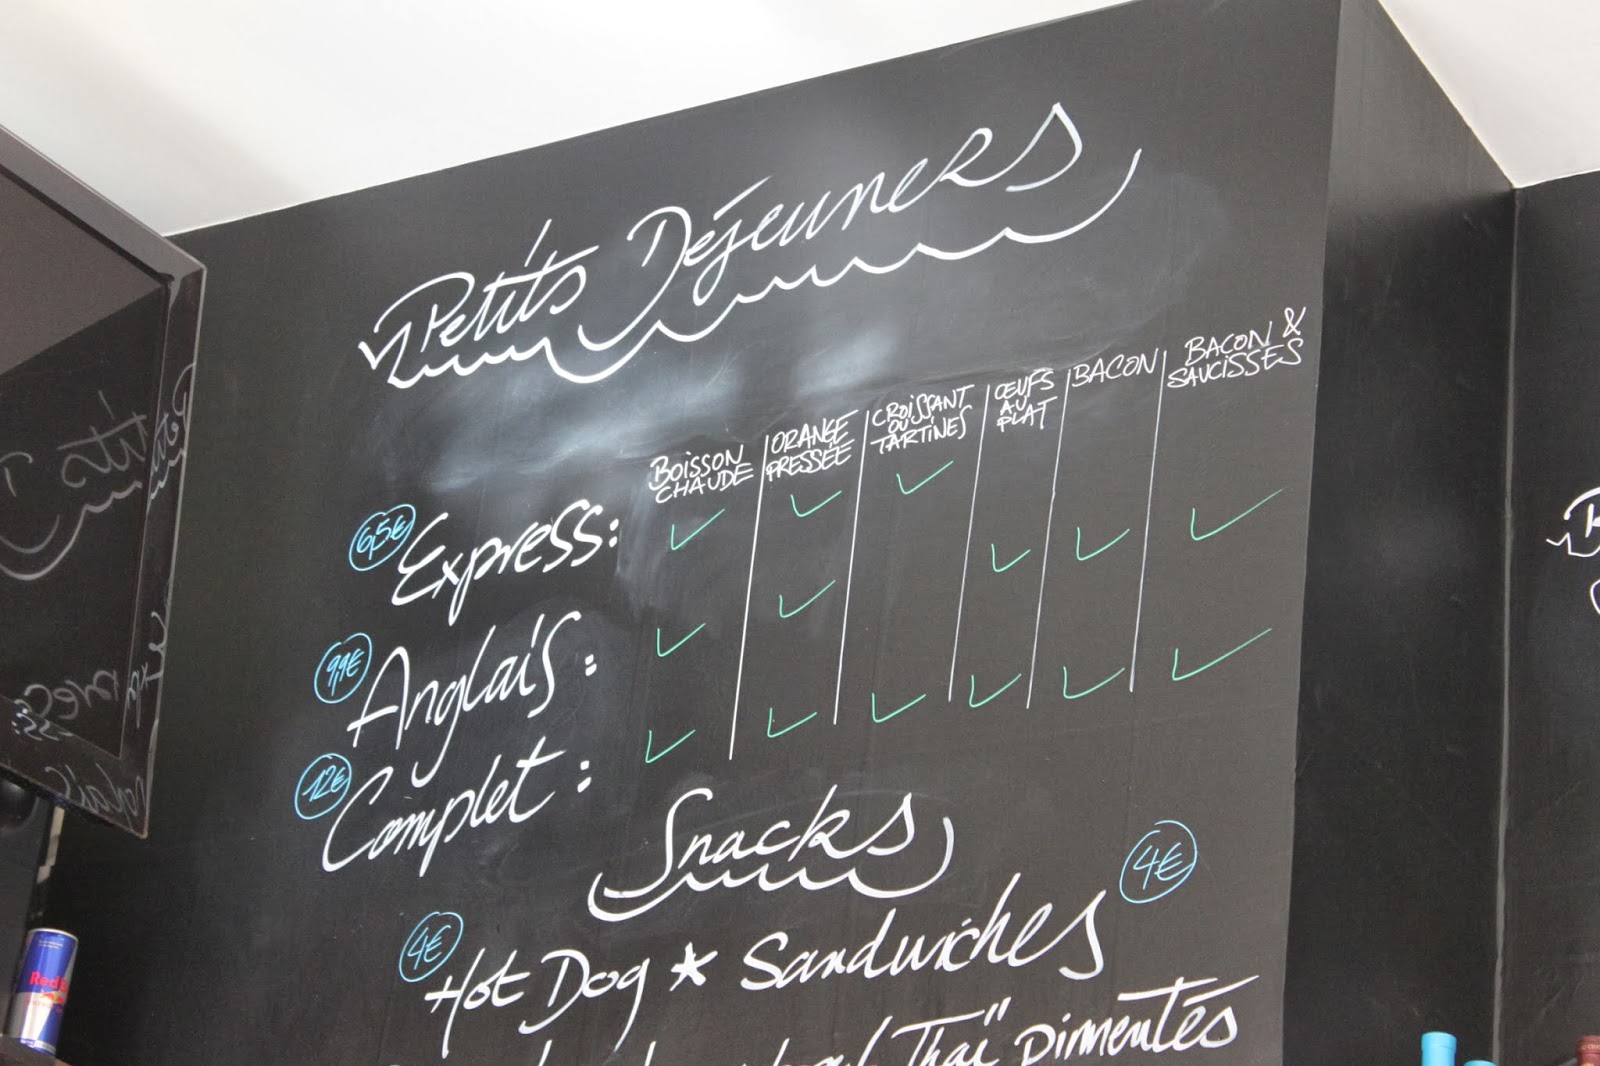 Petits Déjeuners
BOISSON CHAUDE
ORANGE PRESSÉE
CROISSANT OU TARTINES
ŒUFS AU PLAT
BACON
BACON & SAUCISSES
6,5€ Express:
9,9€ Anglais:
12€ Complet:
Snacks
4€ Hot Dog ★ Sandwiches 4€
Thaï" pimentés
Red